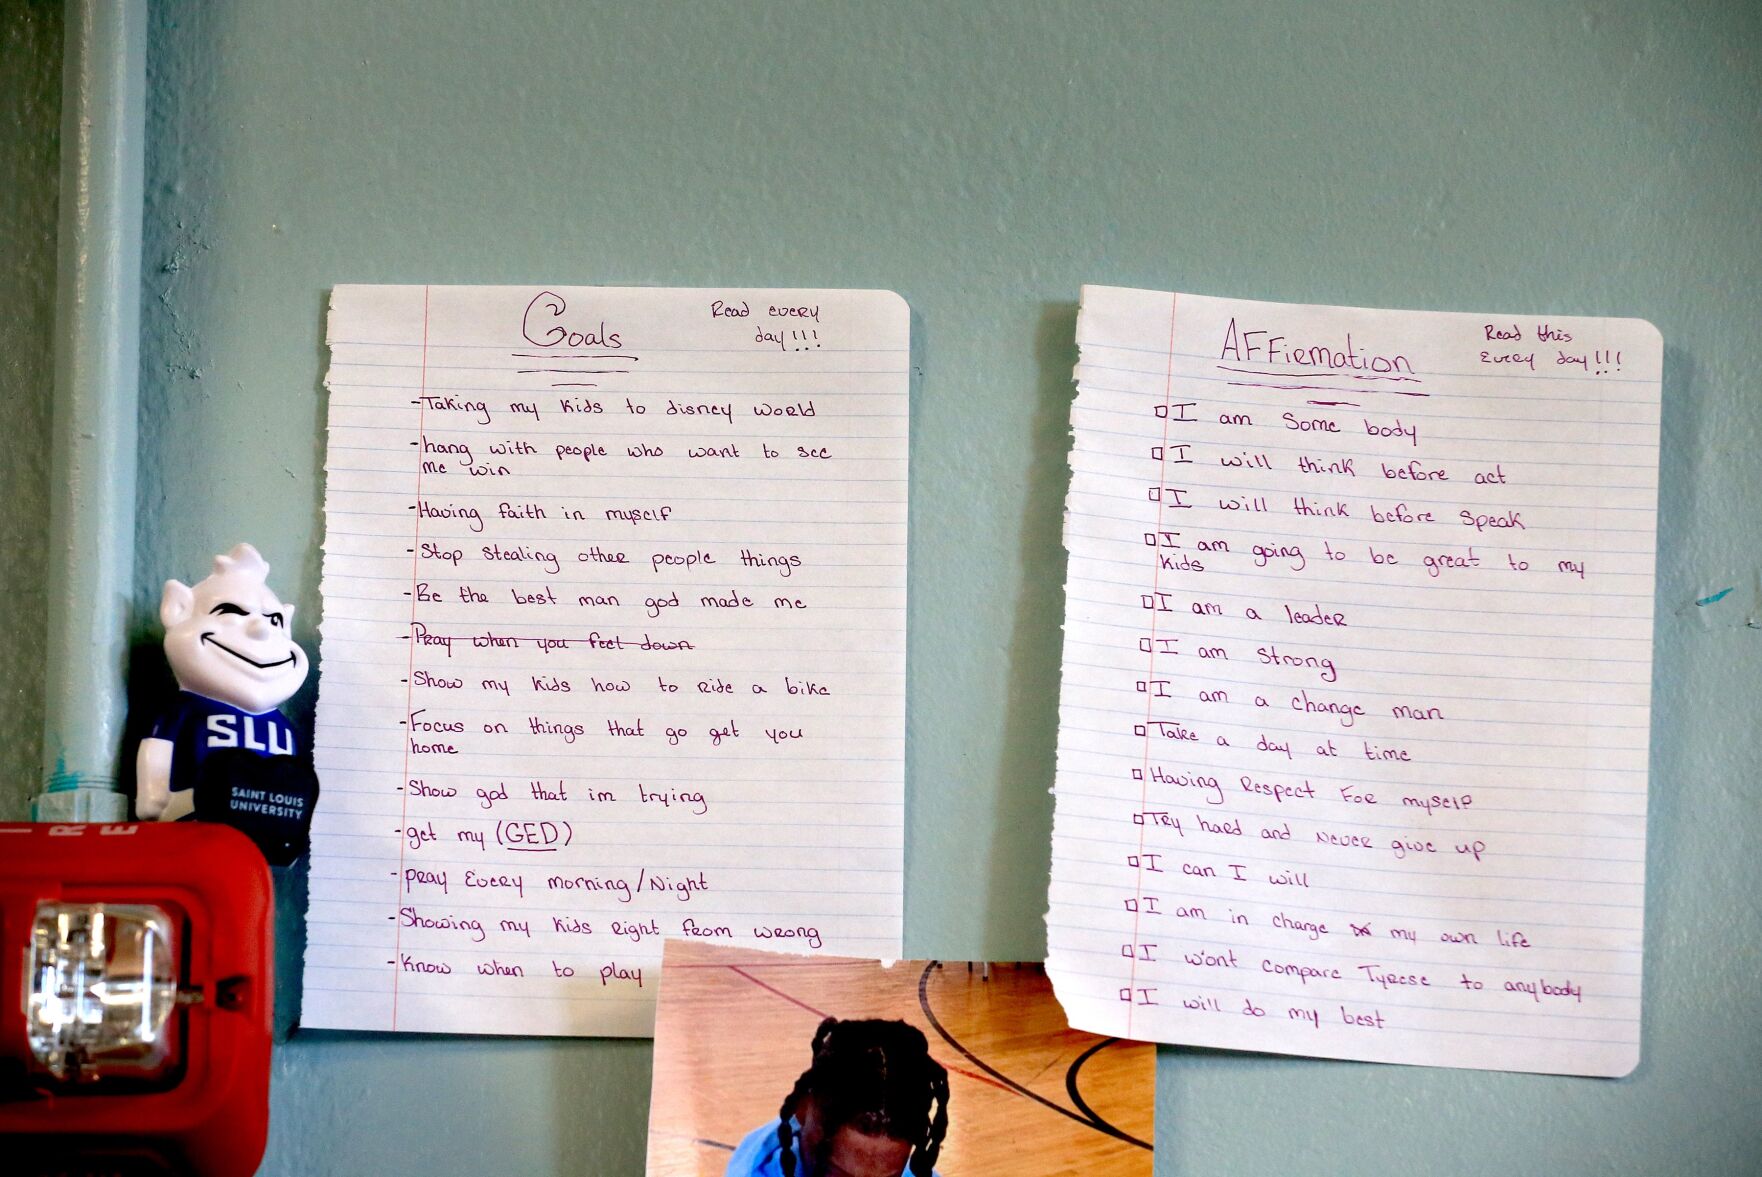 Goals
Read every
day!!!
-Taking my kids to disney world
-hang with people who want to see
me win
-Having faith in myself
-Stop stealing other people things
-Be the best man god made me
-Pray when you feel down
-Show my kids how to ride a bike
-Focus on things that go get you
home
-Show god that im trying
-get my (GED)
-pray Every morning/Night
-Showing my kids right from wrong
-Know when to play
AFFiremation
Read this
Every day!!!
I am Some body
I will think before act
I will think before speak
I am going to be great to my
kids
I am a leader
I am strong
I am a change man
Take a day at time
Having Respect For myself
Try hard and Never give up
I can I will
I am in charge my own life
I wont compare Tyrese to anybody
I will do my best
SLU
SAINT LOUIS
UNIVERSITY
I R E